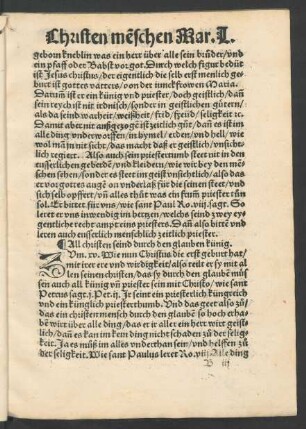 Christen mēschen Mar. L.
geborn kneblin was ein herr über alle sein brüder/vnd
ein pfaff oder Babst vor got. Durch welch figur bedüt
ist Jesus christus/der eigentlich die selb erst menlich ge-
burt ist gottes vatters/von der iunckfrowen Maria.
Darum̄ ist er ein künig vn̄ priester/doch geistlich/dan̄
sein reych ist nit irdnisch/sonder in geistlichen gütern/
als da seind warheit/weißheit/frid/freüd/seligkeit ꝛc.
Damit aber nit außgezogē ist zeitlich gůt/dan̄ es ist im
alle ding vnderworffen/in hymel/erden/vnd hell/wie
wol man jn nit sicht/das macht daß er geistlich/vnsicht-
lich regiert. Also auch sein priesterthumb steet nit in den
eüsserlichen geberdē/vnd kleidern/wie wir bey den mē-
schen sehen/sonder es steet im geist vnsichtlich/also das
er vor gottes augē on vnderlaß für die seinen steet/vnd
sich selb opffert/vn̄ alles thůt was ein frum̄ priester thůn
sol. Er bittet für vns/wie sant Paul Ro. viij. sagt. So
leret er vns inwendig im hertzen/welchs seind zwey ey-
gentliche recht ampt eins priesters. Dan̄ also bittē vnd
leren auch eüsserlich menschlich zeitlich priester.
¶ All christen seind durch den glauben künig.
Zum. xv. Wie nun Christus die erst geburt hat/
mit irer ere vn̄ wirdigkeit/also teilt er sy mit al
len seinen christen/das sy durch den glaubē müs
sen auch all künig vn̄ priester sein mit Christo/wie sant
Petrus sagt. j. Pet. ij. Ir seint ein priesterlich küngreich
vnd ein künglich priesterthumb. Vnd das geet also zů/
das ein christen mensch durch den glaubē so hoch erha-
bē wirt über alle ding/das er aller ein herr wirt geist-
lich/dan̄ es kan im kein ding nicht schaden zů der selig-
keit. Ja es můß im alles vnderthan sein/vnd helffen zů
der seligkeit. Wie sant Paulus leret Ro. viij. Alle ding
B iij